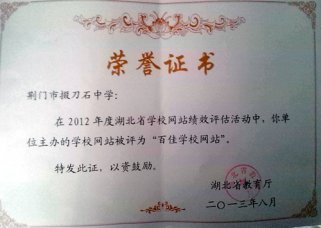 荣誉证书
荆门市掇刀石中学：
在 2012 年度湖北省学校网站绩效评估活动中，你单
位主办的学校网站被评为“百佳学校网站”。
特发此证，以资鼓励。
湖北省教育厅
二〇一三年八月